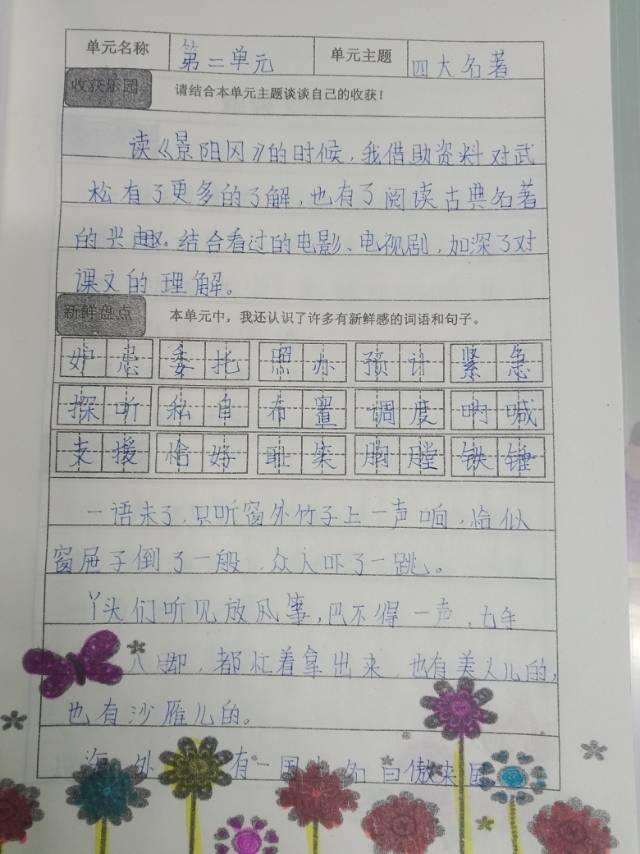 单元名称 第二单元 单元主题 四大名著
收获乐园 请结合本单元主题谈谈自己的收获！
读《景阳冈》的时候，我借助资料对武
松有了更多的了解，也有了阅读古典名著
的兴趣。结合看过的电影、电视剧，加深了对
课文的理解。
新鲜盘点 本单元中，我还认识了许多有新鲜感的词语和句子。
妒忌 委托 照办 预计 紧急
探听 私自 布置 调度 呐喊
支援 恰好 耻笑 胸膛 铁锤
一语未了，只听窗外竹子上一声响，恰似
窗屉子倒了一般，众人吓了一跳。
丫头们听见放风筝，巴不得一声，七手
八脚，都忙着拿出来，也有美人儿的，
也有沙雁儿的。
海外有一国名曰傲来国